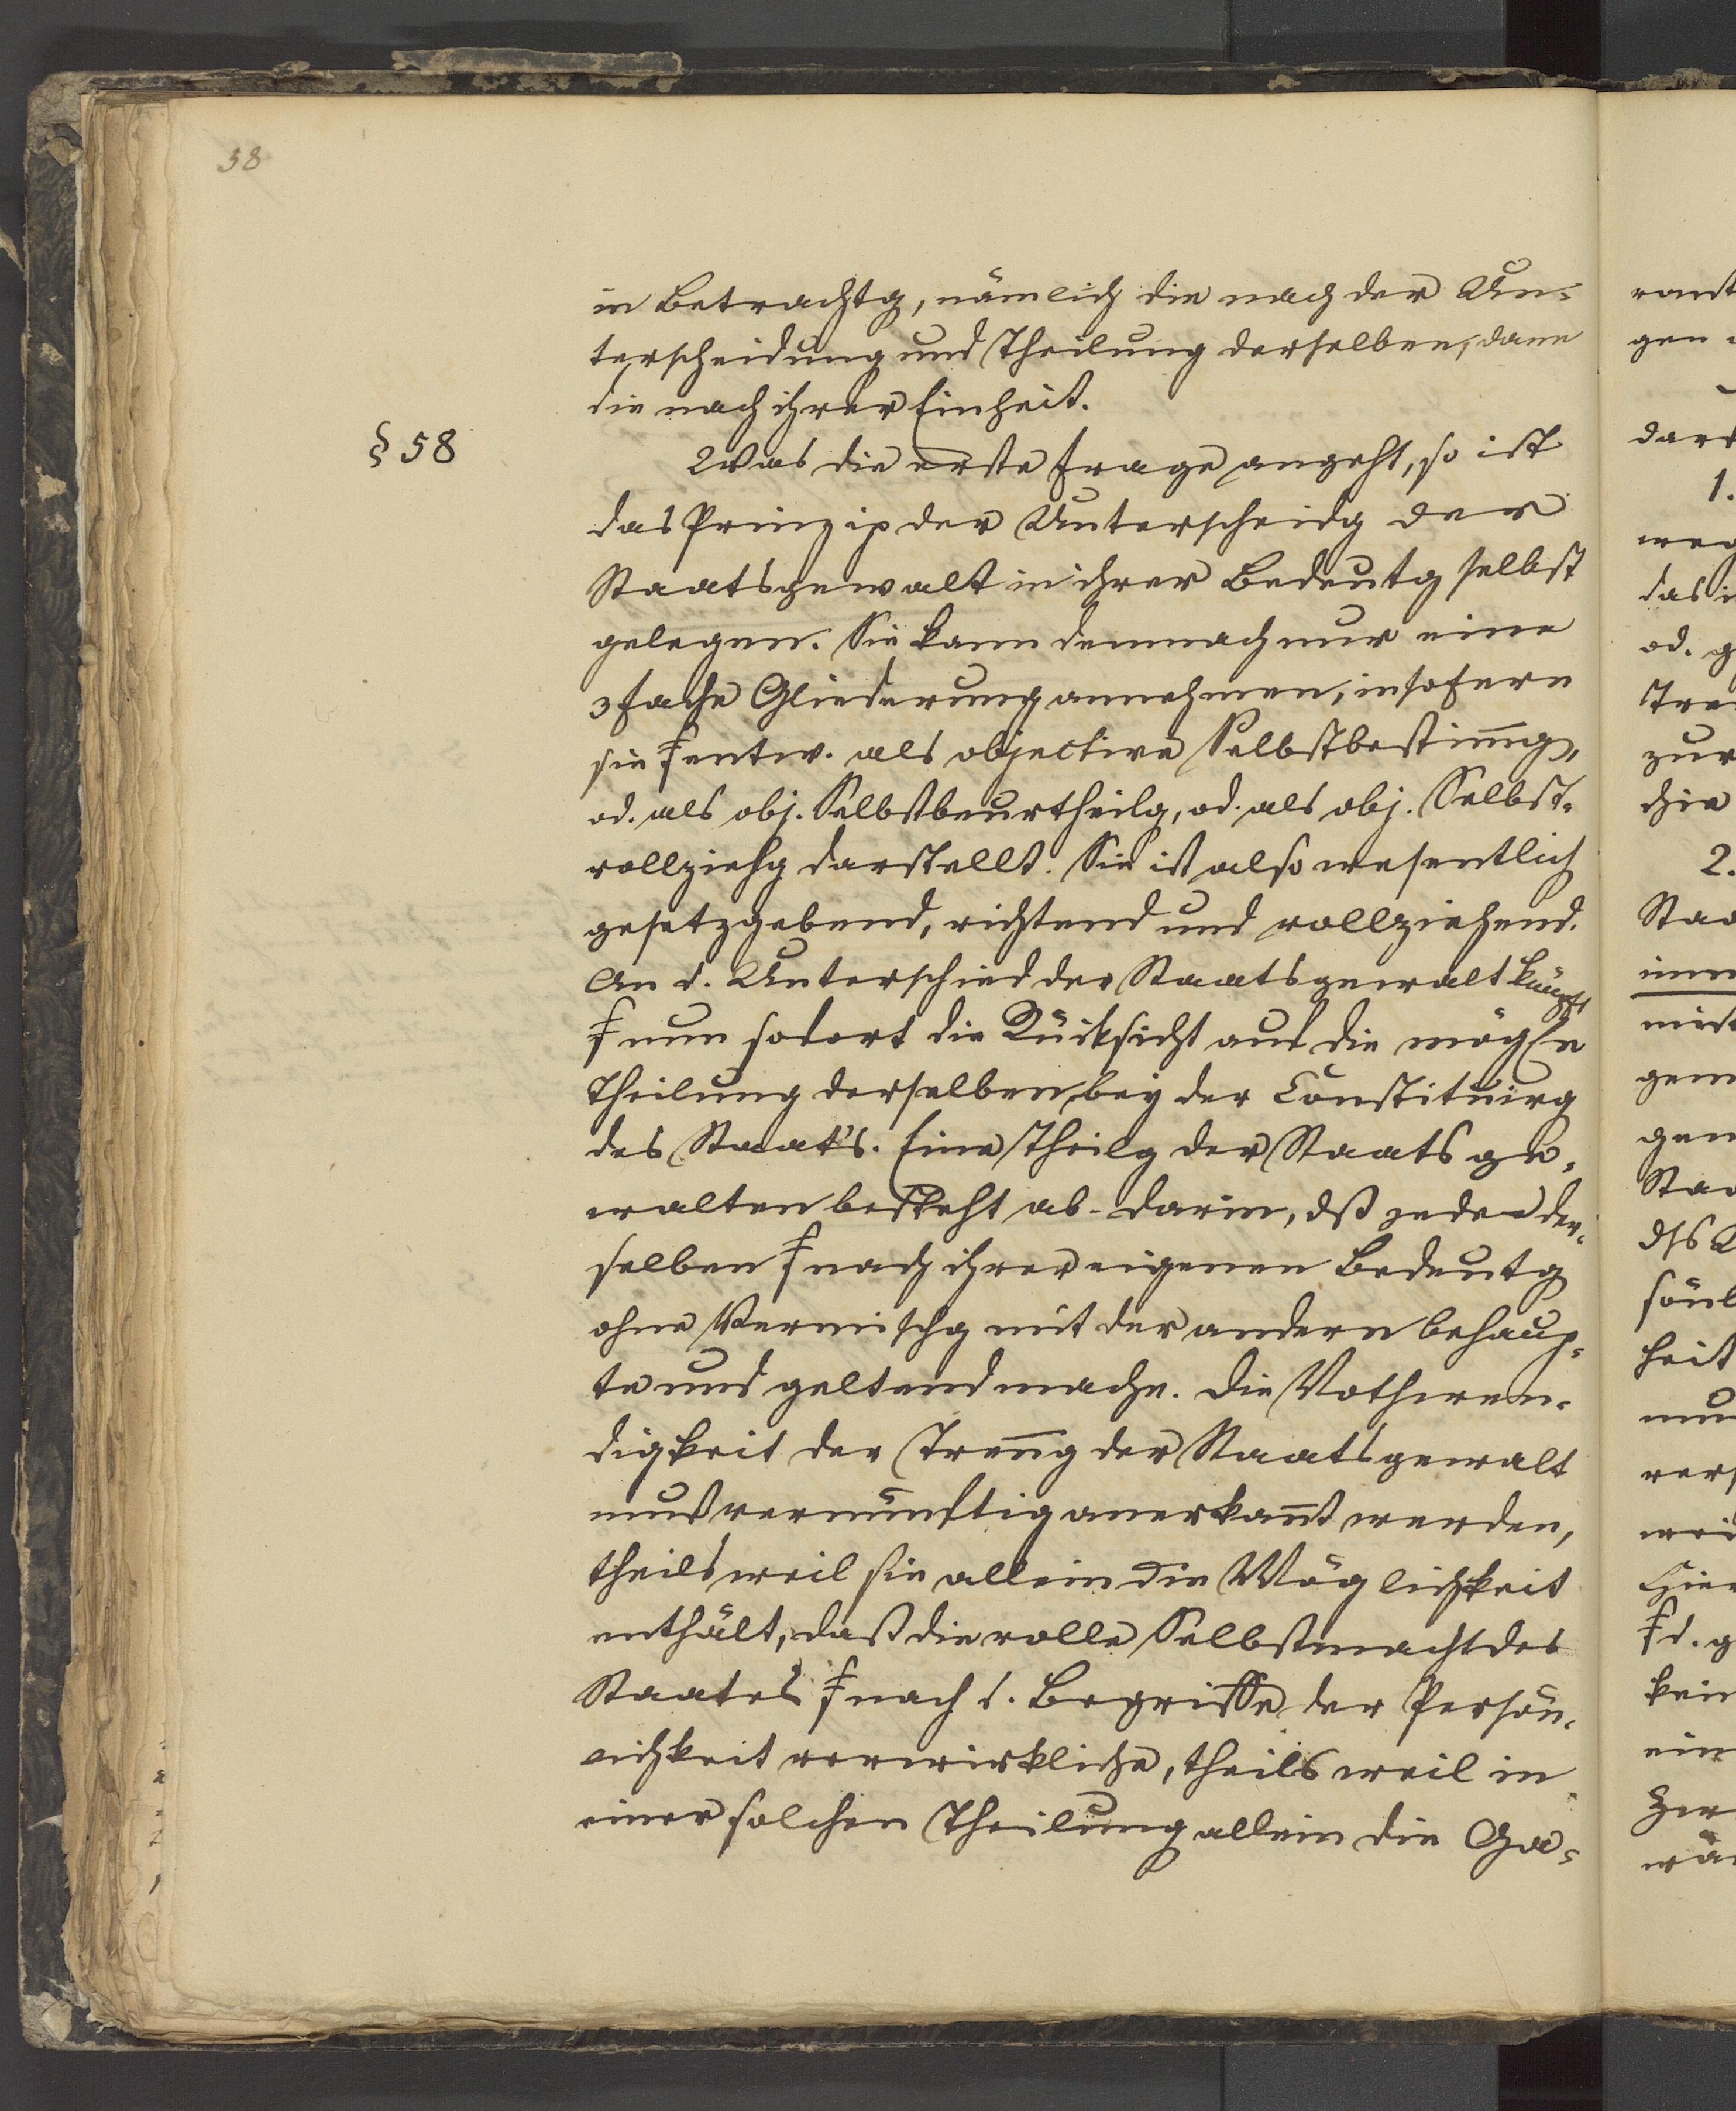 38
in Betrachtg, nämlich die nach der Un-
terscheidung und Theilung derselben, dann
die nach ihrer Einheit.
§ 58
Was die erste Frage angeht, so ist
das Prinzip der Unterscheidg der
Staatsgewalt in ihrer Bedeutg selbst
gelegen. Sie kann demnach nur eine
3fache Gliederung annehmen, insofern
sie entw. als objective Selbstbestim̅g,
od. als obj. Selbstbeurtheilg, od. als obj. Selbst-
vollziehg darstellt. Sie ist also wesentlich
gesetzgebend, richtend und vollziehend.
An d. Unterschied der Staatsgewalt knüpft
nun sofort die Rücksicht auf die mögle
Theilung derselben bey der Constituirg
des Staat's. Eine Theilg der Staats ge-
walten besteht ab. darin, dß jede der-
selben nach ihrer eigenen Bedeutg
ohne Vermischg mit der andern behaup-
te und geltend mache. Die Nothwen-
digkeit der Tren̅g der Staatsgewalt
muß vernünftig anerkan̅t werden,
theils weil sie allein die Möglichkeit
enthält, daß die volle Selbstmacht des
Staates nach d. Begriffe der Persön-
lichkeit verwirkliche, theils weil in
einer solchen Theilung allein die Ga-